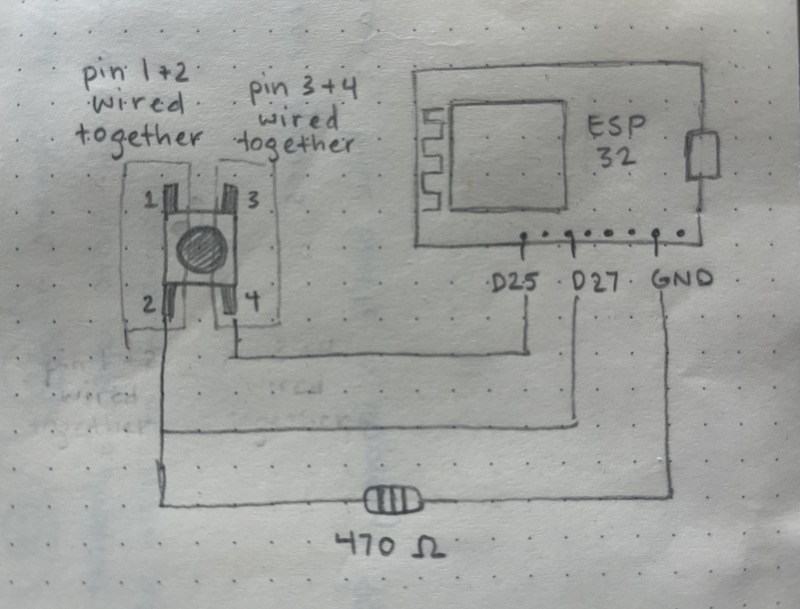 pin 1+2
wired
together
pin 3+4
wired
together
1
3
2
4
ESP
32
D25
D27
GND
470 Ω